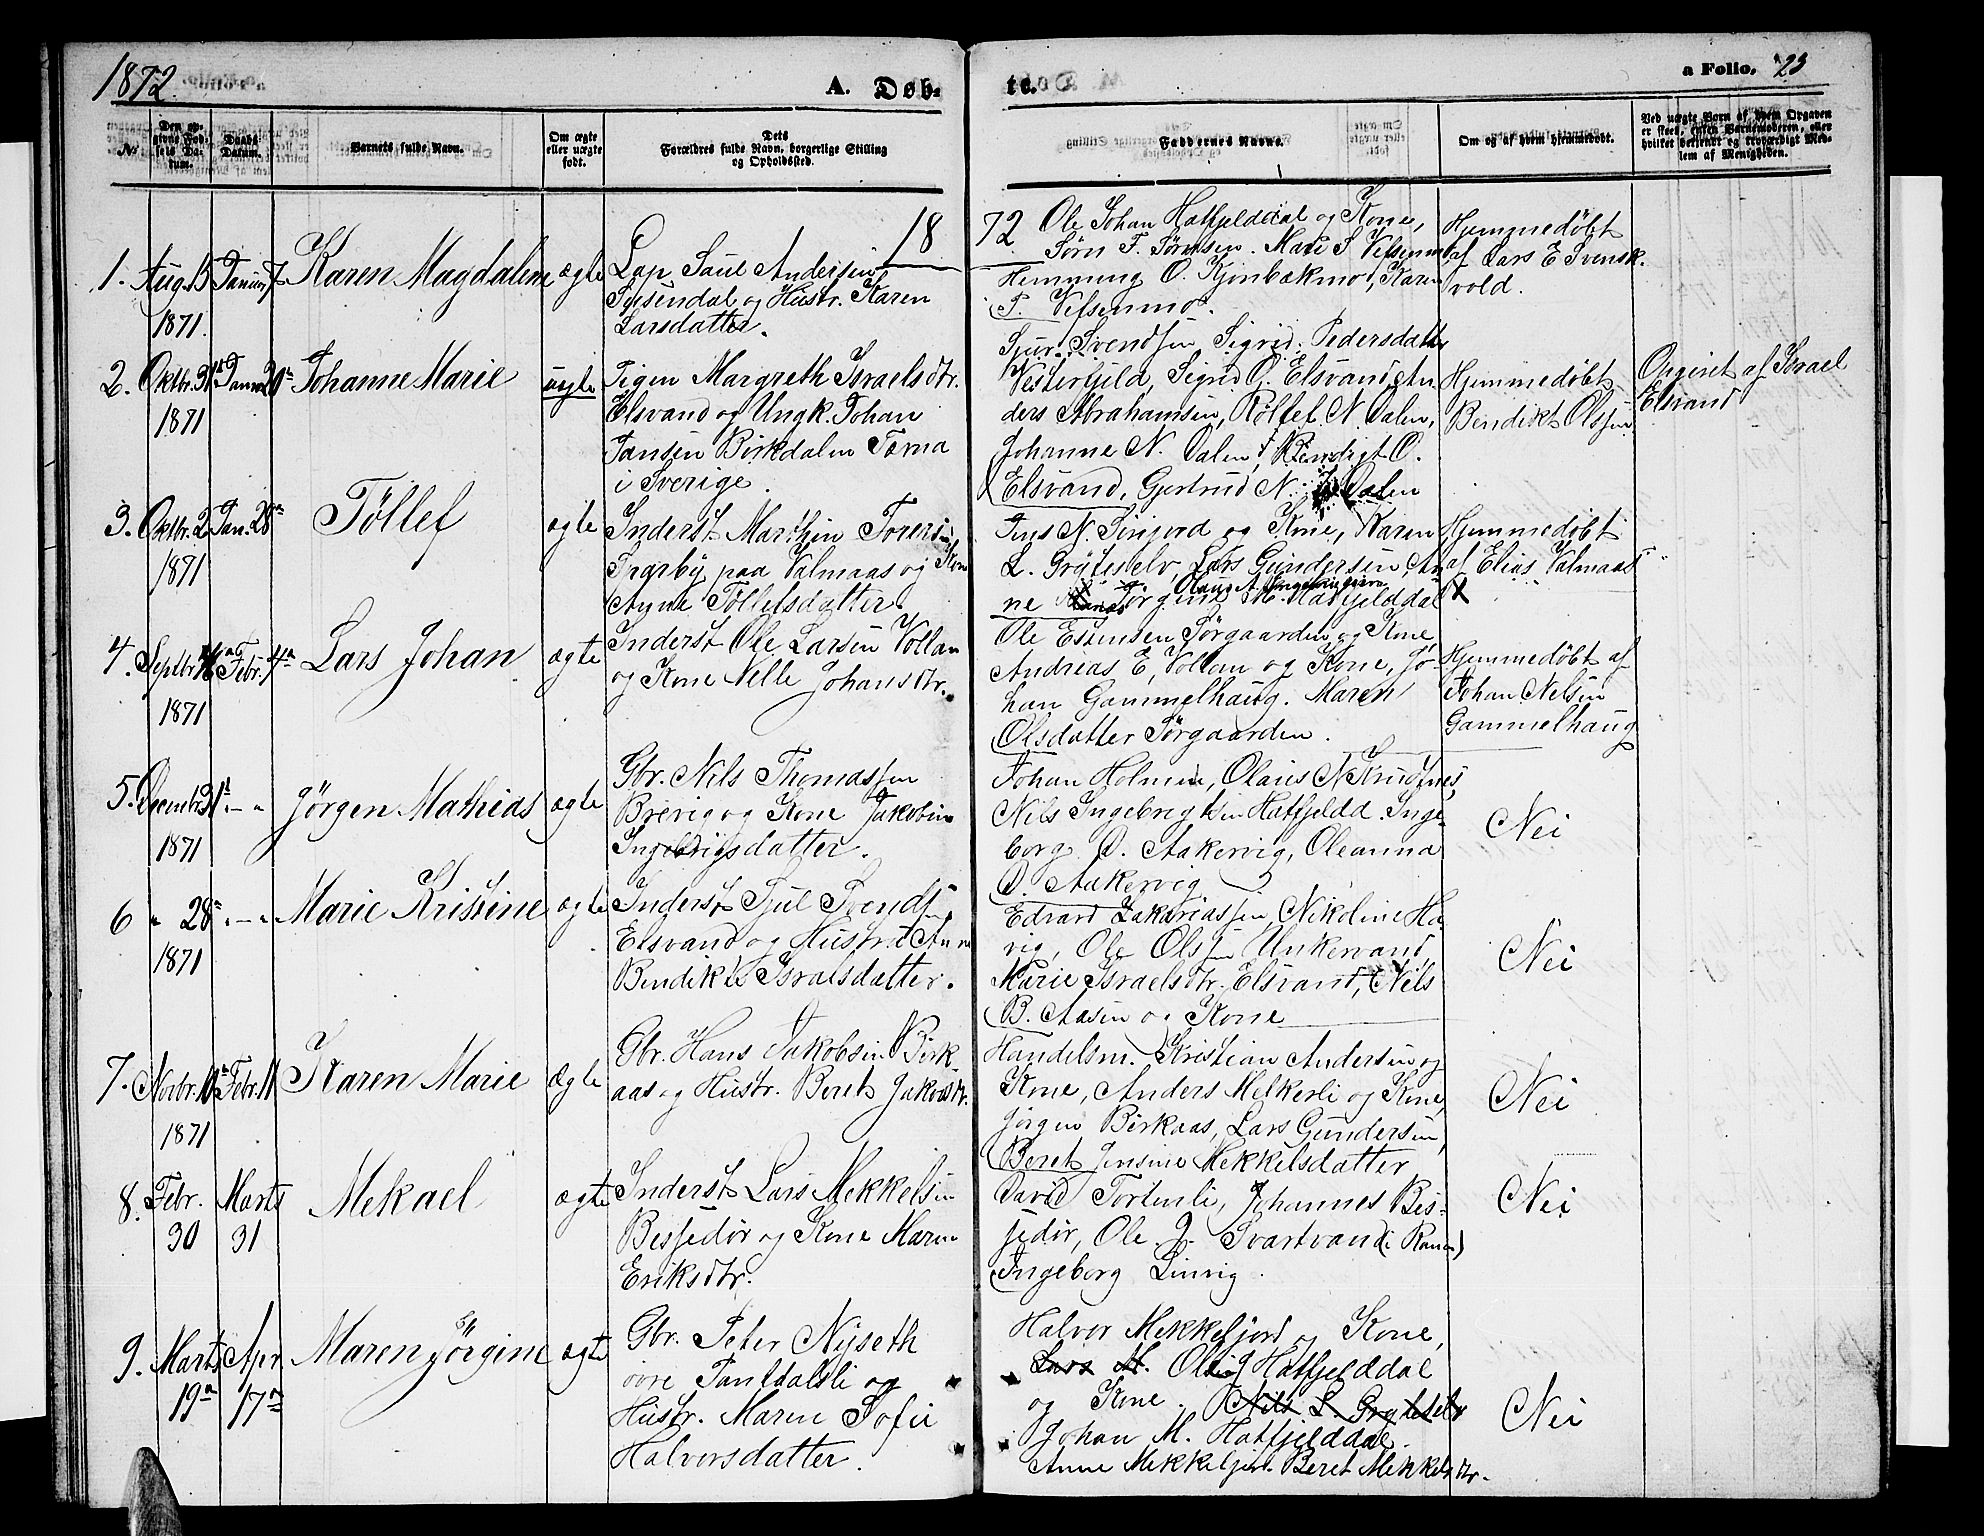 1872.
A. Døb-
te.
a Folio. 23
No.
Den op-
givne Fød-
sels Da-
tum.
Daabs
Datum.
Barnets fulde Navn.
Om ægte
eller uægte
født.
Dets
Forældres fulde Navn, borgerlige Stilling
og Opholdssted.
Faddernes Navne.
Om og af hvem hjemmedøbt.
Ved uægte Barn af hvem Opgaven
er skeet, enten Barnemoderen, eller
hvilket bekjendt og troværdigt Med-
lem af Menigheden.
18
72
1. Aug. 15 Januar 7 Karen Magdalene ægte
1871.
Lap Saul Andersen
Susendal og Hustr. Karen
Larsdatter.
Ole Johan Hatfjelddal og Kone,
Sørn F. Sørnsen. Mari S Vefsenmo
Hemming O. Kjønbakmo, Karen
P. Vefsenmo.
Hjemmedøbt
af Lars E Svensk-
vold.
2. Oktbr. 31 Januar Johanne Marie uægte
1871
Pigen Margreth Israelsdtr.
Elsvand og Ungk. Johan
Jansen Birkdalen Tærna
i Sverige.
Sjur Svendsen Sigrid Pedersdatter
Vesterfjeld, Sigrid O. Elsvand, An
ders Abrahamsen, Røllef N. Dalen,
Johanne N. Dalen, Bendigt O.
Elsvand, Gjertrud N. Dalen
Hjemmedøbt
Bendikt Olsen
Opgivet af Israel
Elsvand
3. Oktbr. 2 Jan. 28de Tøllef ægte
1871
Inderst Marthin
paa Valmaas og Kone
Anne Tøllefsdatter.
Jens N. Sirijord og Kone, Karen
L. Gryteselv, Lars Gundersen, An
ne Jørgine M. Hatfjelddal
Olaus A.
Hjemmedøbt
af Elias Valmaas
4. Septbr. 16 Febr. 4de Lars Johan ægte
1871
Inderst Ole Larsen Vollan
og Kone Nelle Johansdtr.
Ole Essensen Sørgaarden og Kone
Andreas E. Vollan og Kone, Jo-
han Gammelhaug. Maren
Olsdatter Sørgaarden.
Hjemmedøbt af
Johan Nelsen
Gammelhaug
5. Decembr. 31 – " Jørgen Mathias ægte
1871
Gbr. Nils Thomassen
Brevig og Kone Jakobine
Ingebrigsdatter.
Johan Holmen, Olaus N Krudtnes,
Nils Ingebregtsen Hatfjeldd. Inge-
borg O. Aakervig, Oleanna
O. Aakervig
Nei
6 " 28de "–" Marie Kristine ægte
1871
Inderst Sjul Svendsen
Elsvand og Hustru Anne
Bendikte Israelsdatter.
Edvard Zakariassen, Nikoline Ha-
vig, Ole Olsen Unkervand,
Marie Israelsdtr. Elsvand, Nils
B. Aasen og Kone
Nei
7. Novbr. 10de Febr. 11 Karen Marie ægte
1871
Gbr. Hans Jakobsen Birk-
aas og Hustr. Beret Jakobsdtr.
Handelsm. Kristian Andersen og
Kone, Anders Melkerli og Kone,
Jørgen Birkaas, Lars Gundersen,
Beret Jensine Mekkelsdatter
Nei
8. Febr. Marts Mekael ægte
30 31
Inderst Lars Mekkelsen
Bessedør og Kone Maren
Eriksdtr.
David Tortenli, Johannes Bes-
sedør, Ole J. Svartvand (i Ranen)
Ingeborg Linvig.
Nei
9. Marts Apr. Maren Jørgine ægte
19de 17de
Gbr. Peter Nyseth
øvre Pantdalsli og
Hustr. Maren Sofie
Halvorsdatter.
Halvor Mekkeljord og Kone,
Lars M. Hatfjelddal
og Kone. Nils L. Grytselv
Johan M. Hatfjelddal.
Anne Mekkeljord. Beret Mekkelsdtr.
Nei